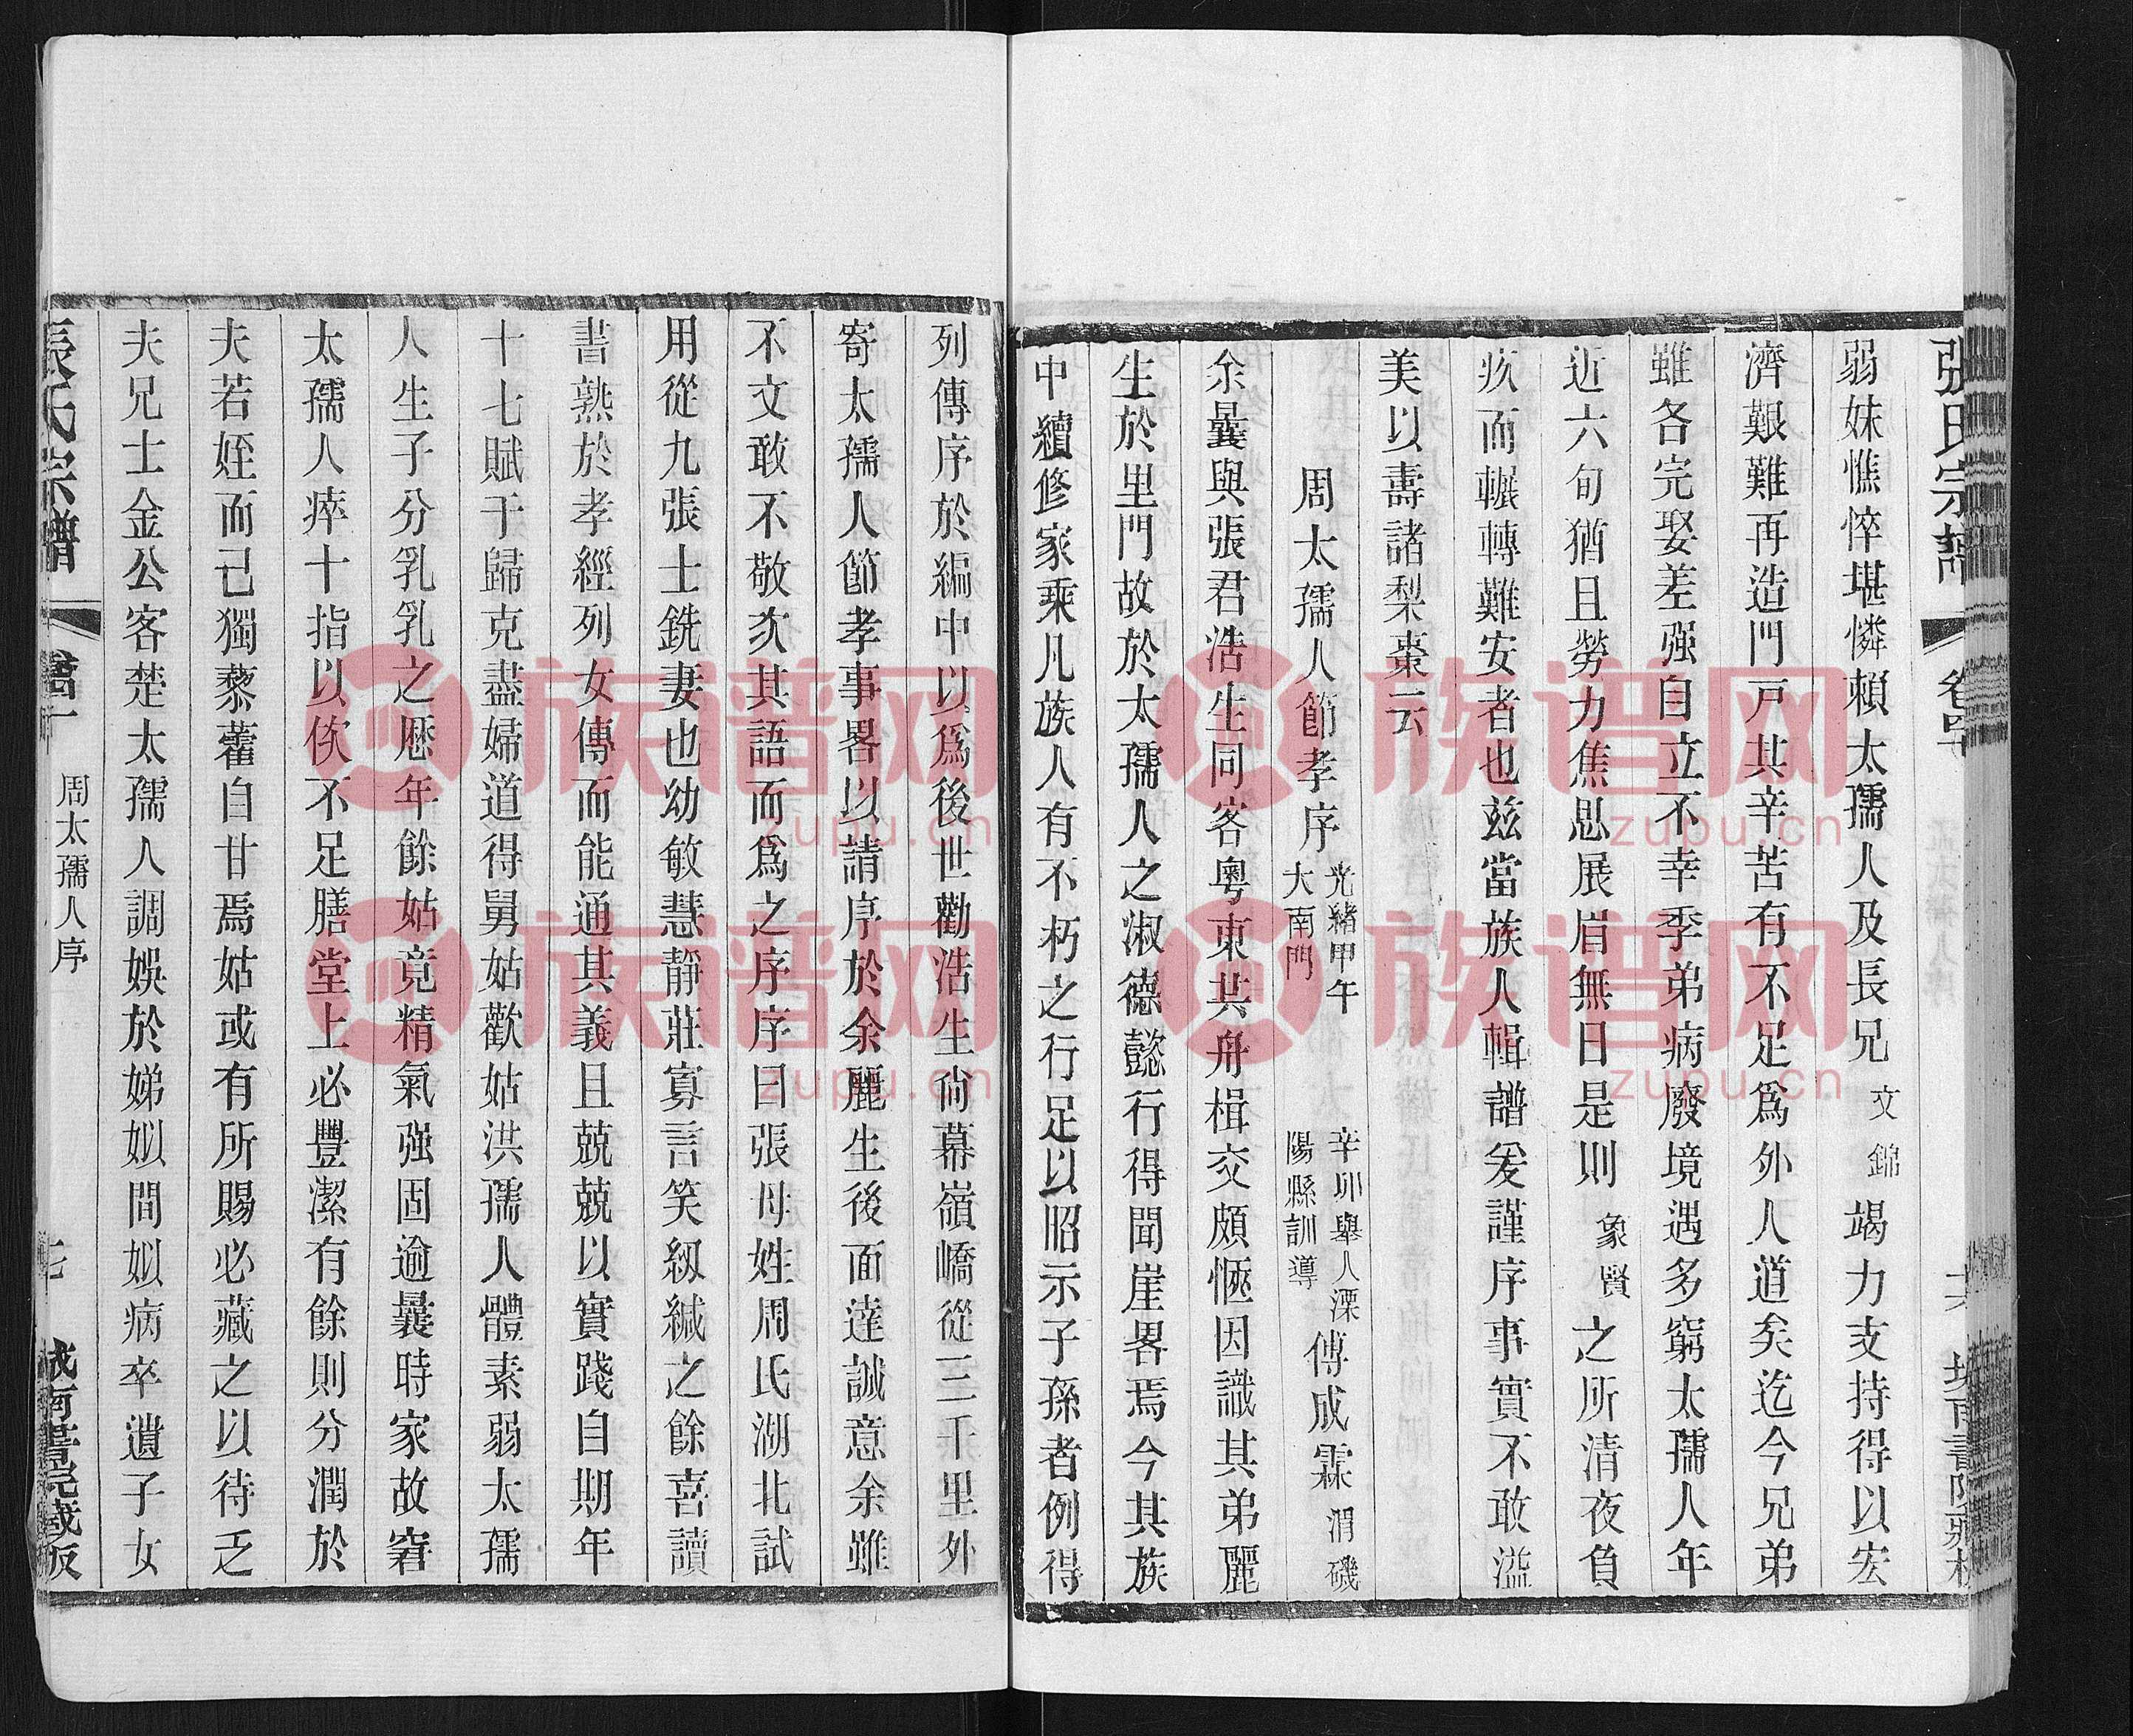 張氏宗譜
弱妹憔悴堪憐賴太孺人及長兄文錦竭力支持得以宏
濟艱難再造門戸其辛苦有不足爲外人道矣迄今兄弟
雖各完娶差强自立不幸季弟病廢境遇多窮太孺人年
近六旬猶且勞力焦思展眉無日是則象賢之所清夜負
疚而輾轉難安者也兹當族人輯譜爰謹序事實不敢溢
美以壽諸梨棗云
周太孺人節孝序 光緒甲午大南門 辛卯舉人溧陽縣訓導 傅成霖 渭磯
余曩與張君浩生同客粵東共舟楫交頗愜因識其弟麗
生於里門故於太孺人之淑德懿行得聞崖畧焉今其族
中續修家乘凡族人有不朽之行足以昭示子孫者例得
列傳序於編中以爲後世勸浩生尙幕嶺嶠從三千里外
寄太孺人節孝事畧以請序於余麗生後面達誠意余雖
不文敢不敬次其語而爲之序序曰張母姓周氏湖北試
用從九張士銑妻也幼敏慧靜莊寡言笑紉緘之餘喜讀
書熟於孝經列女傳而能通其義且兢兢以實踐自期年
十七賦于歸克盡婦道得舅姑歡姑洪孺人體素弱太孺
人生子分乳乳之歷年餘姑竟精氣强固逾曩時家故窘
太孺人瘁十指以佽不足膳堂上必豐潔有餘則分潤於
夫若姪而己獨藜藿自甘焉姑或有所賜必藏之以待乏
夫兄士金公客楚太孺人調娛於娣姒間姒病卒遺子女
張氏宗譜
周太孺人序